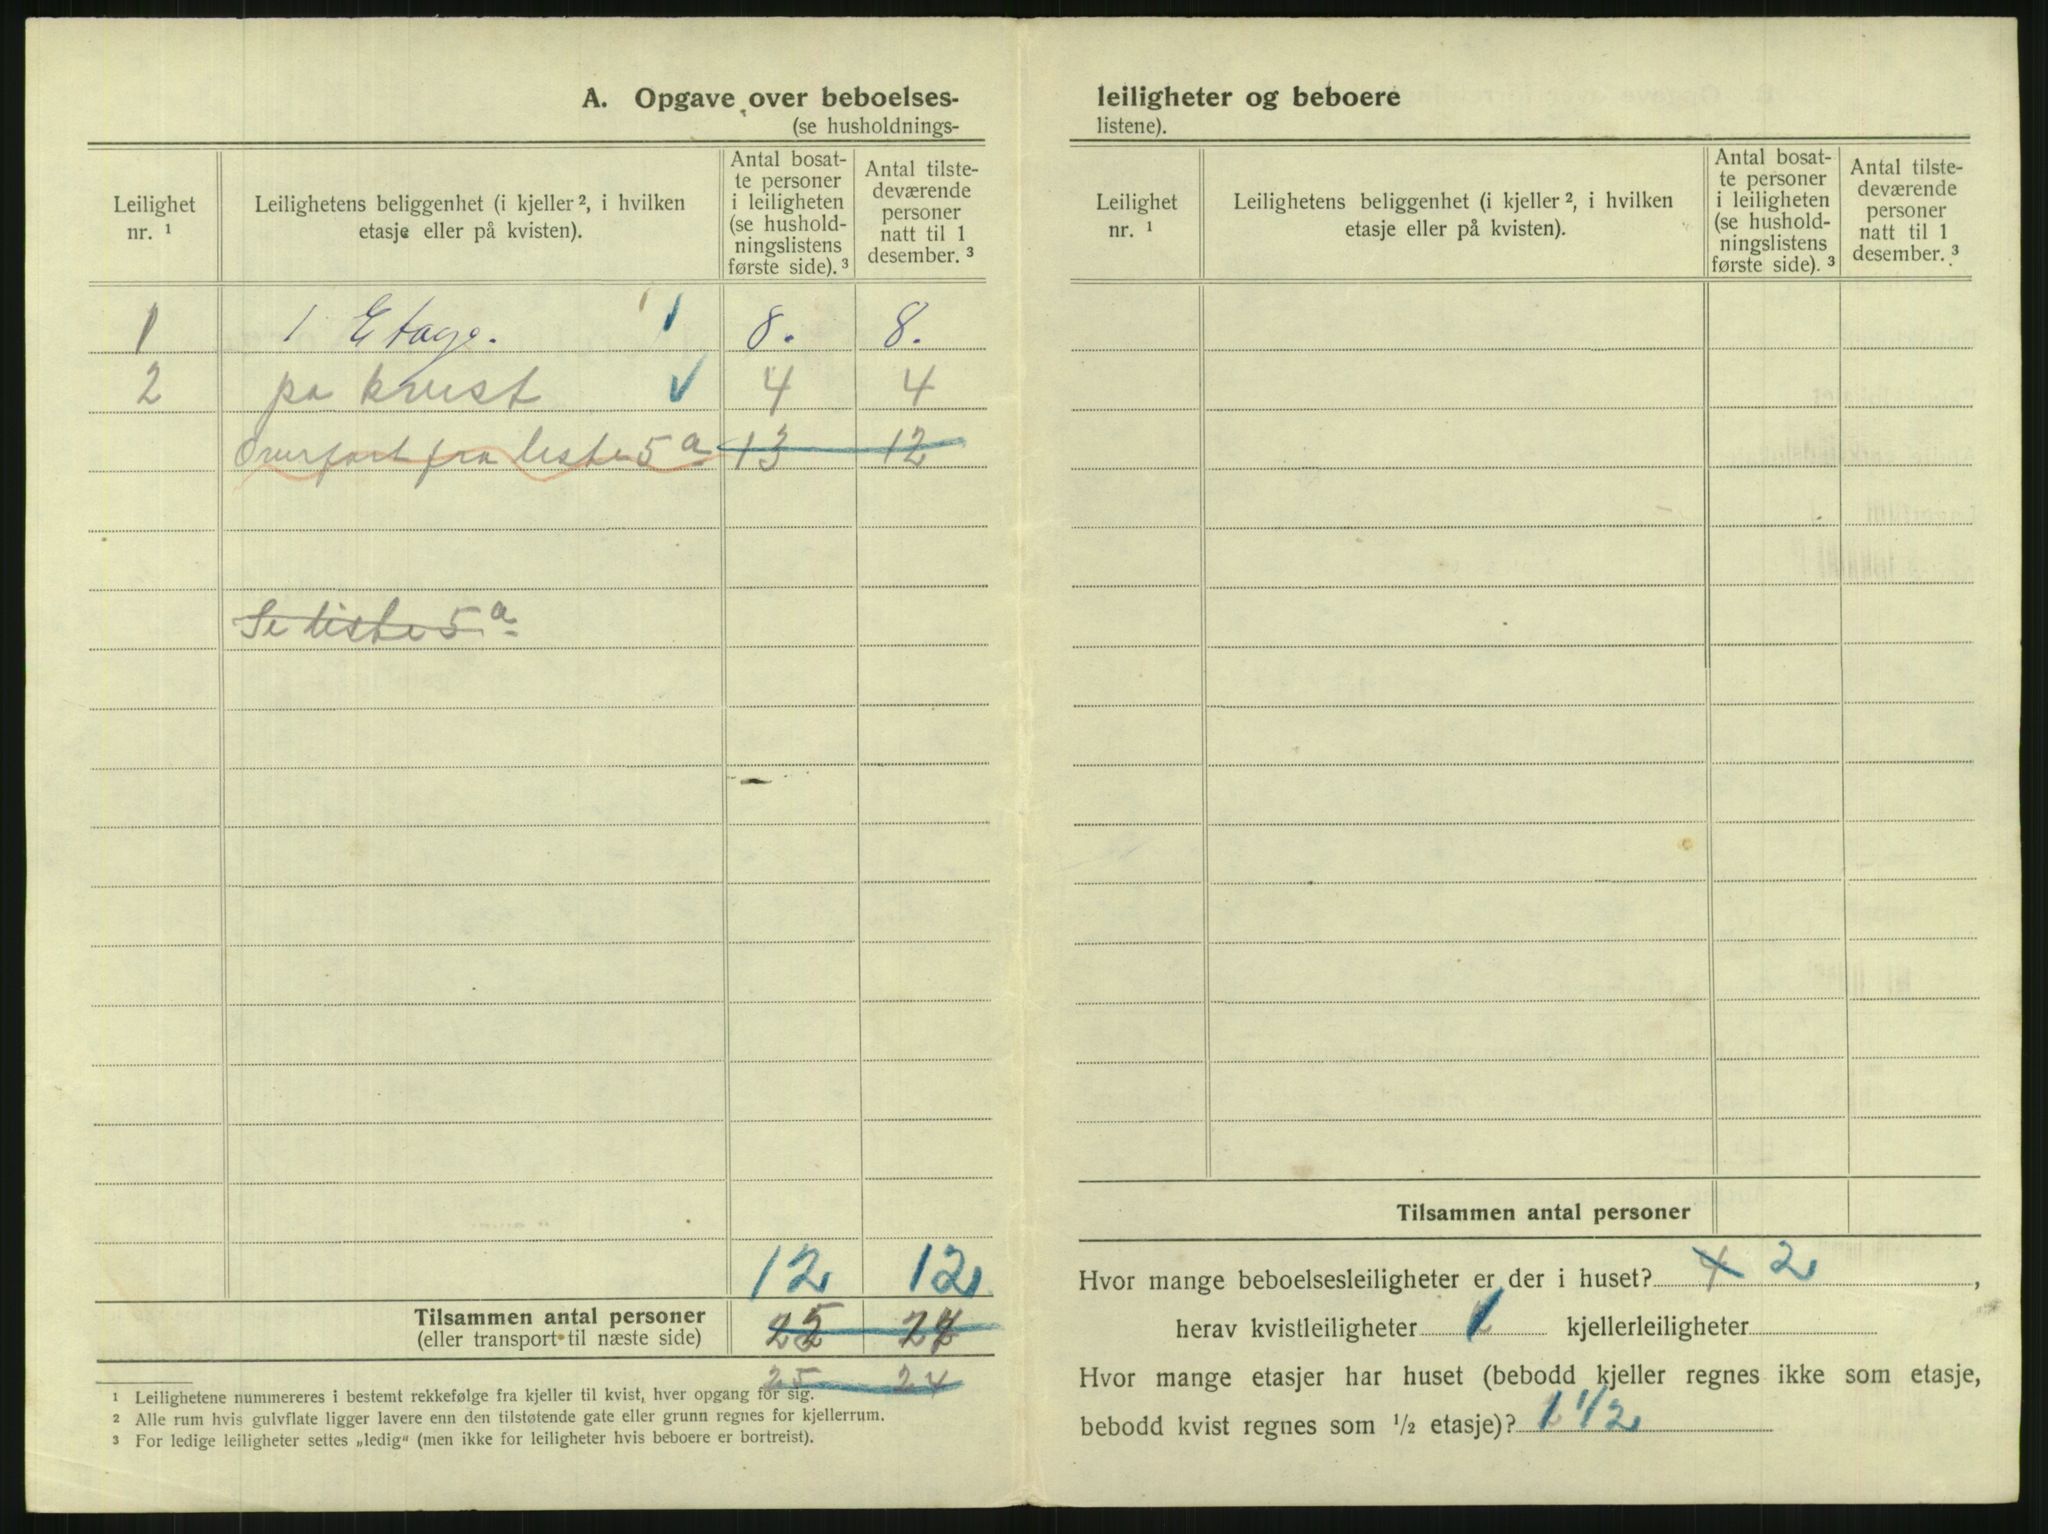 A. Opgave over beboelses-
(se husholdnings-
Leilighet
nr. ¹
Leilighetens beliggenhet (i kjeller ², i hvilken
etasje eller på kvisten).
Antal bosat-
te personer
i leiligheten
(se hushold-
ningslistens
første side). ³
Antal tilste-
deværende
personer
natt til 1
desember. ³
1 1 Etage. 8. 8.
2 pa kvist 4 4
Overført fra liste 5a 13 12
Se liste 5a
12 12
Tilsammen antal personer
(eller transport til næste side)
25 24
¹ Leilighetene nummereres i bestemt rekkefølge fra kjeller til kvist, hver opgang for sig.
² Alle rum hvis gulvflate ligger lavere enn den tilstøtende gate eller grunn regnes for kjellerrum.
³ For ledige leiligheter settes „ledig“ (men ikke for leiligheter hvis beboere er bortreist).
leiligheter og beboere
listene).
Leilighet
nr. ¹
Leilighetens beliggenhet (i kjeller ², i hvilken
etasje eller på kvisten).
Antal bosat-
te personer
i leiligheten
(se hushold-
ningslistens
første side). ³
Antal tilste-
deværende
personer
natt til 1
desember. ³
Tilsammen antal personer
Hvor mange beboelsesleiligheter er der i huset? 4 2,
herav kvistleiligheter 1 kjellerleiligheter
Hvor mange etasjer har huset (bebodd kjeller regnes ikke som etasje,
bebodd kvist regnes som ½ etasje)? 1 1/2